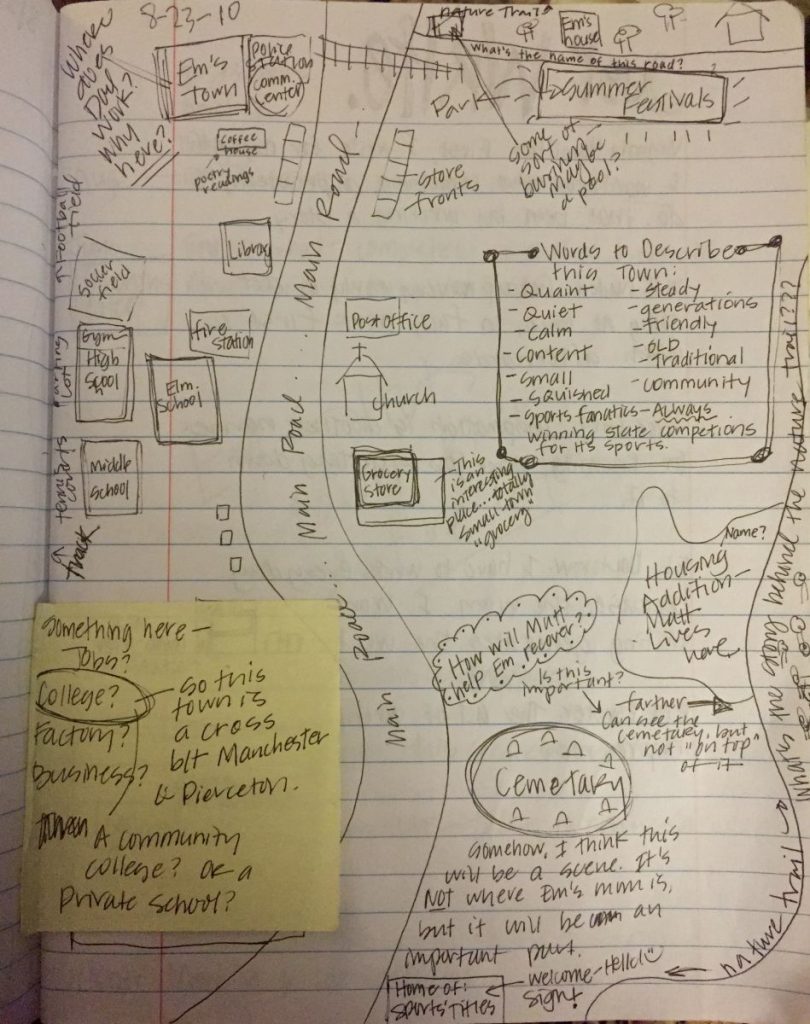 8-23-10
Where
does
Dad
Work?
Why
here?
Em's
Town
Police
Station
Comm.
Center
nature Trail
Em's
house
what's the name of this road?
Park
Summer
Festivals
some
sort of
business
maybe
a pool?
Coffee
house
poetry
readings
store
fronts
Main Road
Library
↑ Football
field
Soccer
field
Words to Describe
this Town:
- Quaint
- Quiet
- Calm
- Content
- Small
- Squished
- Sports fanatics - Always
winning state competions
for its sports.
- Steady
- generations
- Friendly
- OLD
- Traditional
- Community
fire
station
Post Office
Gym
High
School
Parking
Lot
Elm.
School
Church
Main Road...
Middle
School
tennis
courts
↑
track
Grocery
Store
- This
is an
interesting
place...totally
small-town
"grocery"
Main Road...
Name?
Housing
Addition-
Matt
Lives
here
What's the story behind the nature trail???
How will Matt
help Em recover?
Is this
important?
farther
Can see the
cemetary, but
not "on top"
of it
Main
Road
Something here -
Jobs?
College?
Factory?
Business?
- So this
town is
a cross
b/t Manchester
& Pierceton.
A community
college? or a
Private School?
Cemetary
Somehow, I think this
will be a scene. It's
NOT where Em's mom is,
but it will be an
important part.
nature trail
Home of:
Sports' Titles
welcome-Hello!
sign!